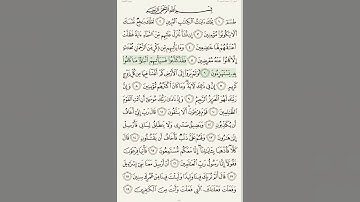 بِسْمِ اللَّهِ الرَّحْمَٰنِ الرَّحِيمِ
طسٓمٓ ١ تِلْكَ ءَايَٰتُ ٱلْكِتَٰبِ ٱلْمُبِينِ ٢ لَعَلَّكَ بَٰخِعٌ نَّفْسَكَ
أَلَّا يَكُونُوا۟ مُؤْمِنِينَ ٣ إِن نَّشَأْ نُنَزِّلْ عَلَيْهِم مِّنَ ٱلسَّمَآءِ ءَايَةً فَظَلَّتْ
أَعْنَٰقُهُمْ لَهَا خَٰضِعِينَ ٤ وَمَا يَأْتِيهِم مِّن ذِكْرٍ مِّنَ ٱلرَّحْمَٰنِ مُحْدَثٍ
إِلَّا كَانُوا۟ عَنْهُ مُعْرِضِينَ ٥ فَقَدْ كَذَّبُوا۟ فَسَيَأْتِيهِمْ أَنۢبَٰٓؤُا۟ مَا كَانُوا۟
بِهِۦ يَسْتَهْزِءُونَ ٦ أَوَلَمْ يَرَوْا۟ إِلَى ٱلْأَرْضِ كَمْ أَنۢبَتْنَا فِيهَا مِن كُلِّ زَوْجٍ
كَرِيمٍ ٧ إِنَّ فِى ذَٰلِكَ لَءَايَةً وَمَا كَانَ أَكْثَرُهُم مُّؤْمِنِينَ ٨ وَإِنَّ
رَبَّكَ لَهُوَ ٱلْعَزِيزُ ٱلرَّحِيمُ ٩ وَإِذْ نَادَىٰ رَبُّكَ مُوسَىٰٓ أَنِ ٱئْتِ ٱلْقَوْمَ
ٱلظَّٰلِمِينَ ١٠ قَوْمَ فِرْعَوْنَ أَلَا يَتَّقُونَ ١١ قَالَ رَبِّ إِنِّىٓ أَخَافُ
أَن يُكَذِّبُونِ ١٢ وَيَضِيقُ صَدْرِى وَلَا يَنطَلِقُ لِسَانِى فَأَرْسِلْ
إِلَىٰ هَٰرُونَ ١٣ وَلَهُمْ عَلَىَّ ذَنۢبٌ فَأَخَافُ أَن يَقْتُلُونِ ١٤ قَالَ
كَلَّا فَٱذْهَبَا بِـَٔايَٰتِنَآ إِنَّا مَعَكُم مُّسْتَمِعُونَ ١٥ فَأْتِيَا فِرْعَوْنَ
فَقُولَآ إِنَّا رَسُولُ رَبِّ ٱلْعَٰلَمِينَ ١٦ أَنْ أَرْسِلْ مَعَنَا بَنِىٓ إِسْرَٰٓءِيلَ
١٧ قَالَ أَلَمْ نُرَبِّكَ فِينَا وَلِيدًا وَلَبِثْتَ فِينَا مِنْ عُمُرِكَ سِنِينَ ١٨
وَفَعَلْتَ فَعْلَتَكَ ٱلَّتِى فَعَلْتَ وَأَنتَ مِنَ ٱلْكَٰفِرِينَ ١٩